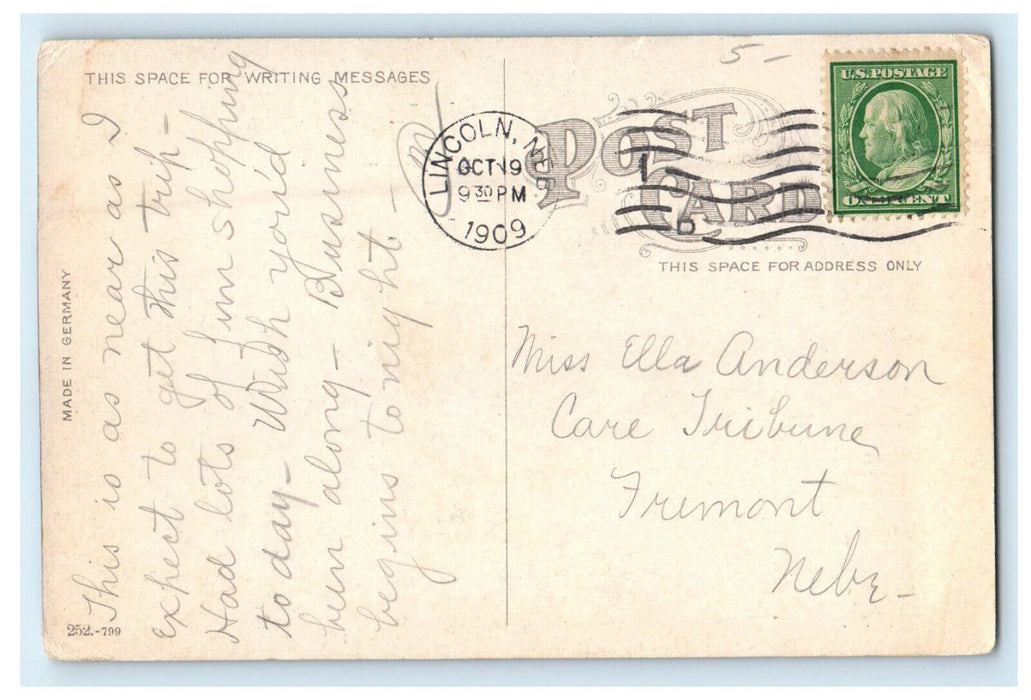 THIS SPACE FOR WRITING MESSAGES
This is as near as I
expect to get this trip -
Had lots of fun shopping
to day - Wish you'd
been along - Bussness
begins to night -
MADE IN GERMANY
252.-799
5-
LINCOLN, NEB.
OCT 19
9 30 PM
1909
POST
CARD
L
D
U.S. POSTAGE
ONE CENT
THIS SPACE FOR ADDRESS ONLY
Miss Ella Anderson
Care Tribune
Fremont
Nebr -